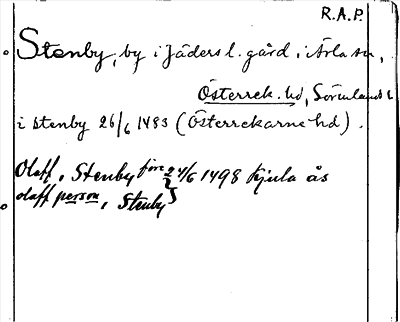 R.A.P.
Stenby, by i Jäders l. gård, i Ärla sn,
Österrek. hd, Sörmlands l.
i stenby 26/6 1483 (Österrekarne hd).
Olaff, Stenby före 24/6 1498 Kjula ås
olaff person, Stenby